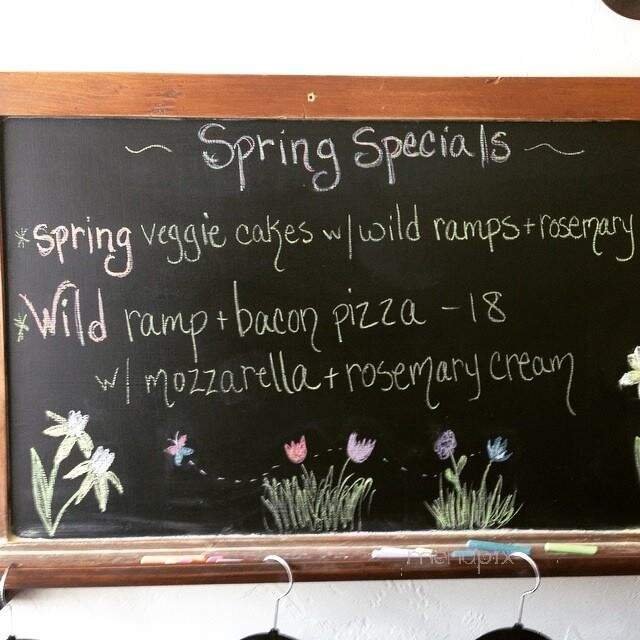 ~ Spring Specials ~
* spring veggie cakes w/ wild ramps + rosemary
* Wild ramp + bacon pizza - 18
w/ mozzarella + rosemary cream
menupix